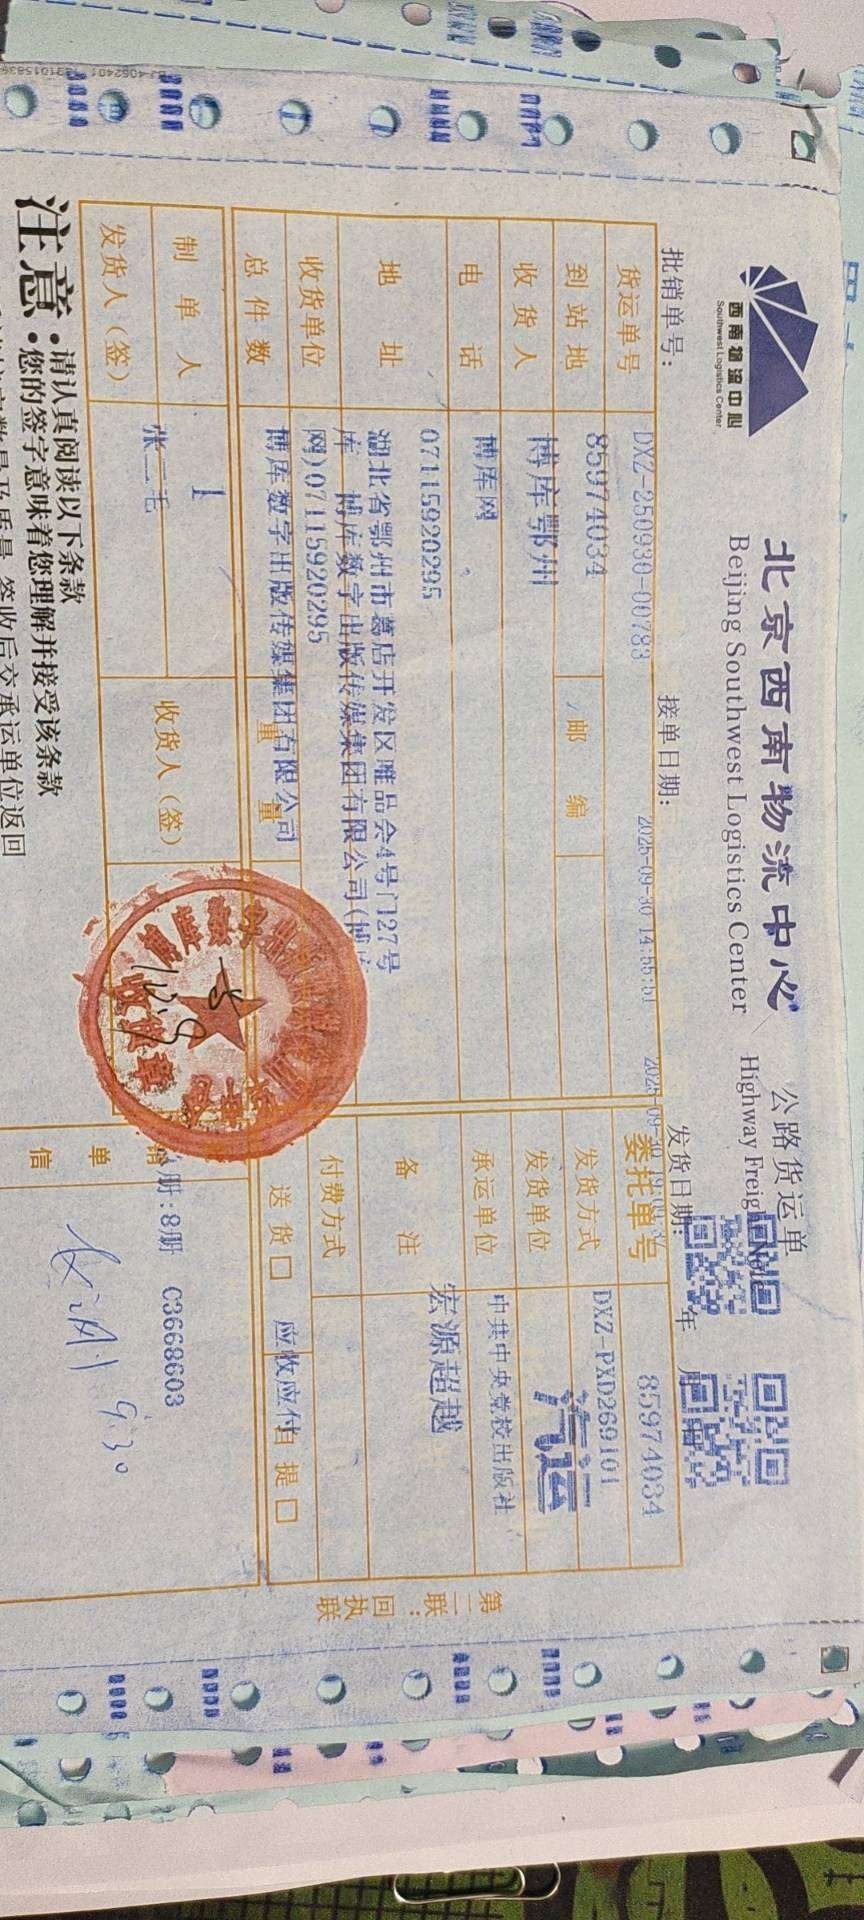 西南物流中心
Southwest Logistics Center
北京西南物流中心 公路货运单
Beijing Southwest Logistics Center Highway Freight Note
批销单号: 接单日期: 2025-09-30 14:55:51 发货日期: 年 月
货运单号 DXZ-250930-00783 委托单号 85974034
到站地 85974034 邮编 发货方式 DXZ-PXD269101
收货人 博库鄂州 发货单位 汽运
电话 博库网 承运单位 中共中央党校出版社
地址 07115920295 备注 宏源超越
湖北省鄂州市葛店开发区唯品会4号门27号
库 博库数字出版传媒集团有限公司(博库
收货单位 网)07115920295 付费方式
总件数 博库数字出版传媒集团有限公司 送货□ 应收应付 自提□
制单人 1 收货人(签) 册:8册 C3668603
发货人(签) 张二毛 单
信
9.30
注意:
·请认真阅读以下条款
·您的签字意味着您理解并接受该条款
签收后交承运单位返回
第二联:回执联